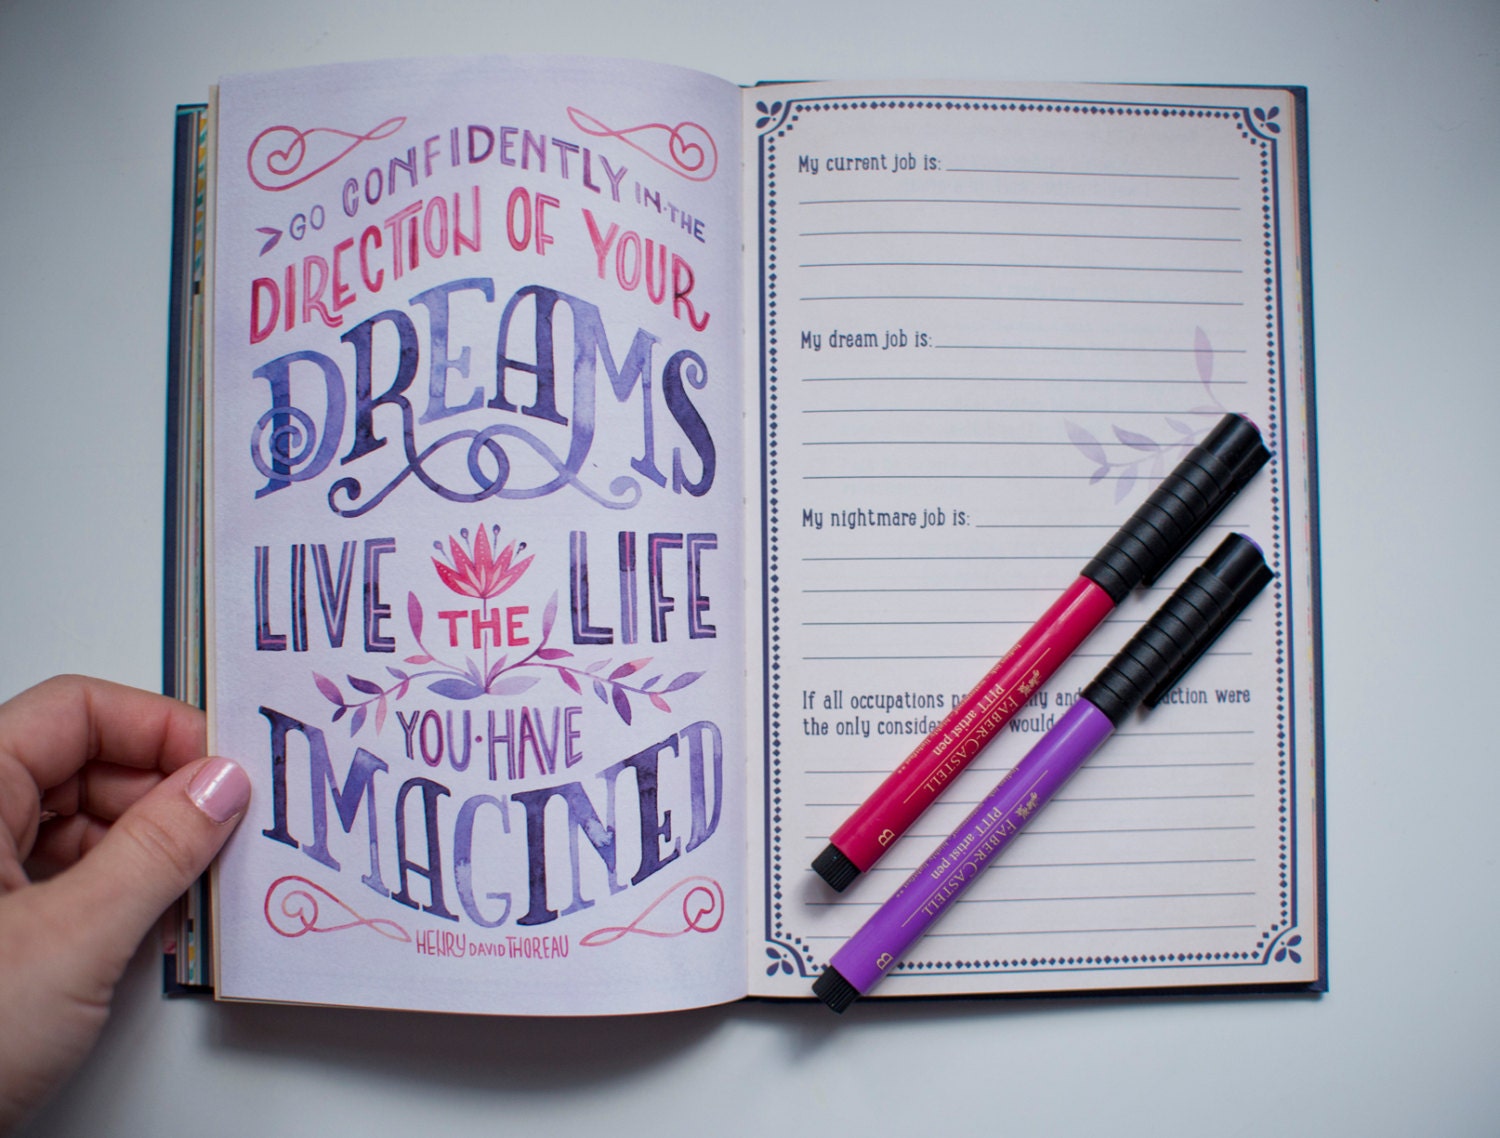 GO CONFIDENTLY IN·THE
DIRECTION OF YOUR
DREAMS
LIVE THE LIFE
YOU·HAVE
IMAGINED
HENRY DAVID THOREAU
My current job is:
My dream job is:
My nightmare job is:
If all occupations and were
the only would
FABER-CASTELL
PITT artist pen
B
FABER-CASTELL
PITT artist pen
B